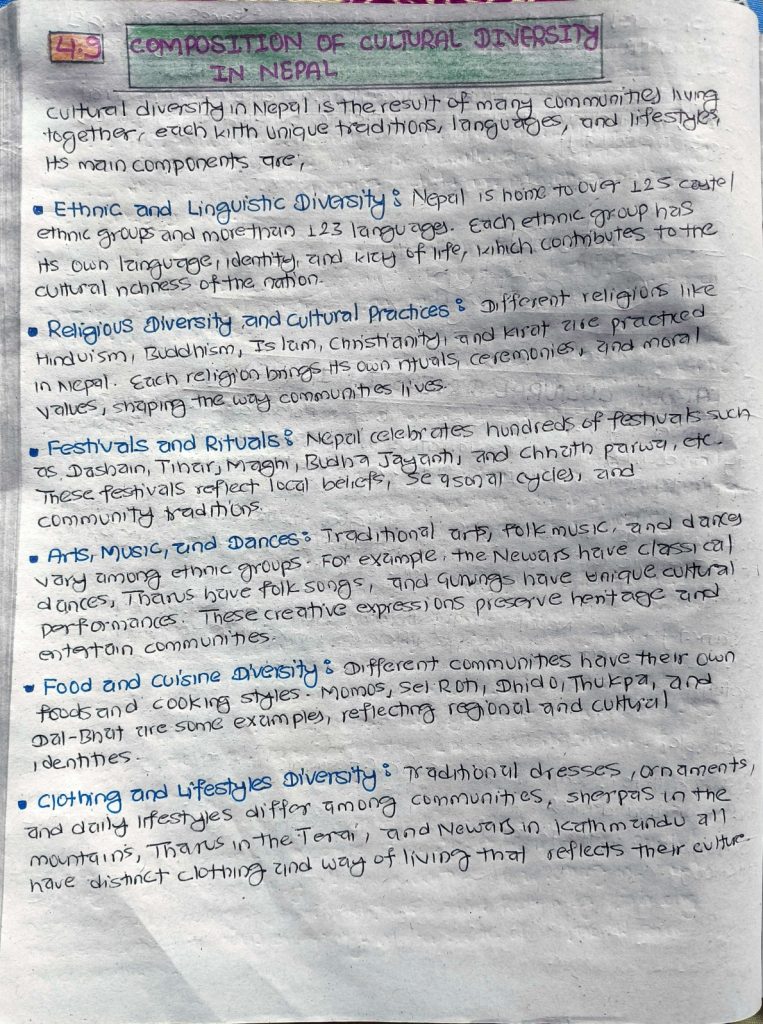 4.9 COMPOSITION OF CULTURAL DIVERSITY
IN NEPAL
Cultural diversity in Nepal is the result of many communities living
together, each with unique traditions, languages, and lifestyles,
Its main components are,
• Ethnic and Linguistic Diversity: Nepal is home to over 125 caste/
ethnic groups and more than 123 languages. Each ethnic group has
its own language, identity, and way of life, which contributes to the
cultural richness of the nation.
• Religious Diversity and Cultural Practices: Different religions like
Hinduism, Buddhism, Islam, Christianity, and Kirat are practiced
in Nepal. Each religion brings its own rituals, ceremonies, and moral
values, shaping the way communities lives.
• Festivals and Rituals: Nepal celebrates hundreds of festivals such
as Dashain, Tihar, Maghi, Budha Jayanti, and Chhath parwa, etc.
These festivals reflect local beliefs, seasonal cycles, and
community traditions.
• Arts, Music, and Dances: Traditional arts, folk music, and dances
vary among ethnic groups. For example, the Newars have classical
dances, Tharus have folk songs, and Gurungs have unique cultural
performances. These creative expressions preserve heritage and
entertain communities.
• Food and cuisine Diversity: Different communities have their own
foods and cooking styles. Momos, Sel Roti, Dhido, Thukpa, and
Dal-Bhat are some examples, reflecting regional and cultural
identities.
• Clothing and Lifestyles Diversity: Traditional dresses, ornaments,
and daily lifestyles differ among communities, sherpas in the
mountains, Tharus in the Terai, and Newars in Kathmandu all
have distinct clothing and way of living that reflects their culture.